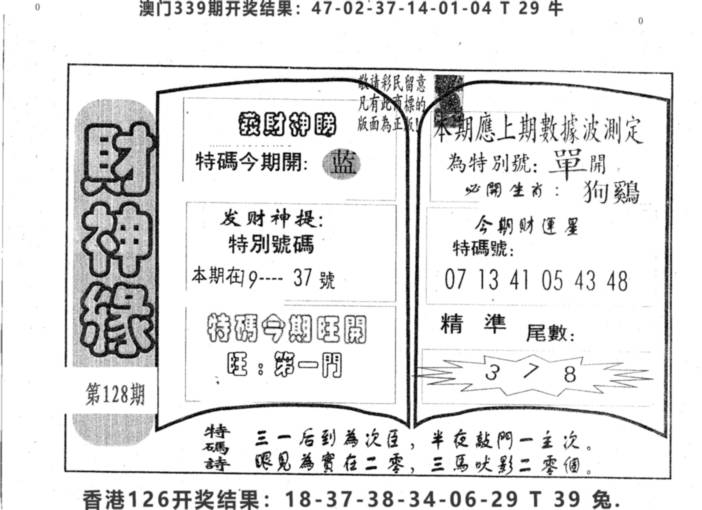 澳门339期开奖结果：47-02-37-14-01-04 T 29 牛
0
0
敬请彩民留意
凡有此商標的
版面為正版!
財神緣
第128期
發財神睇
特碼今期開: 蓝
发财神提:
特別號碼
本期在19---- 37 號
特碼今期旺開
旺：第一門
本期應上期數據波測定
為特別號: 單開
必開生肖: 狗鷄
今期財運星
特碼號:
07 13 41 05 43 48
精準 尾數:
3 7 8
特碼詩
三一后到為次臣，半夜敲門一主次。
眼見為實在二零，三馬吠影二零個。
香港126开奖结果：18-37-38-34-06-29 T 39 兔.